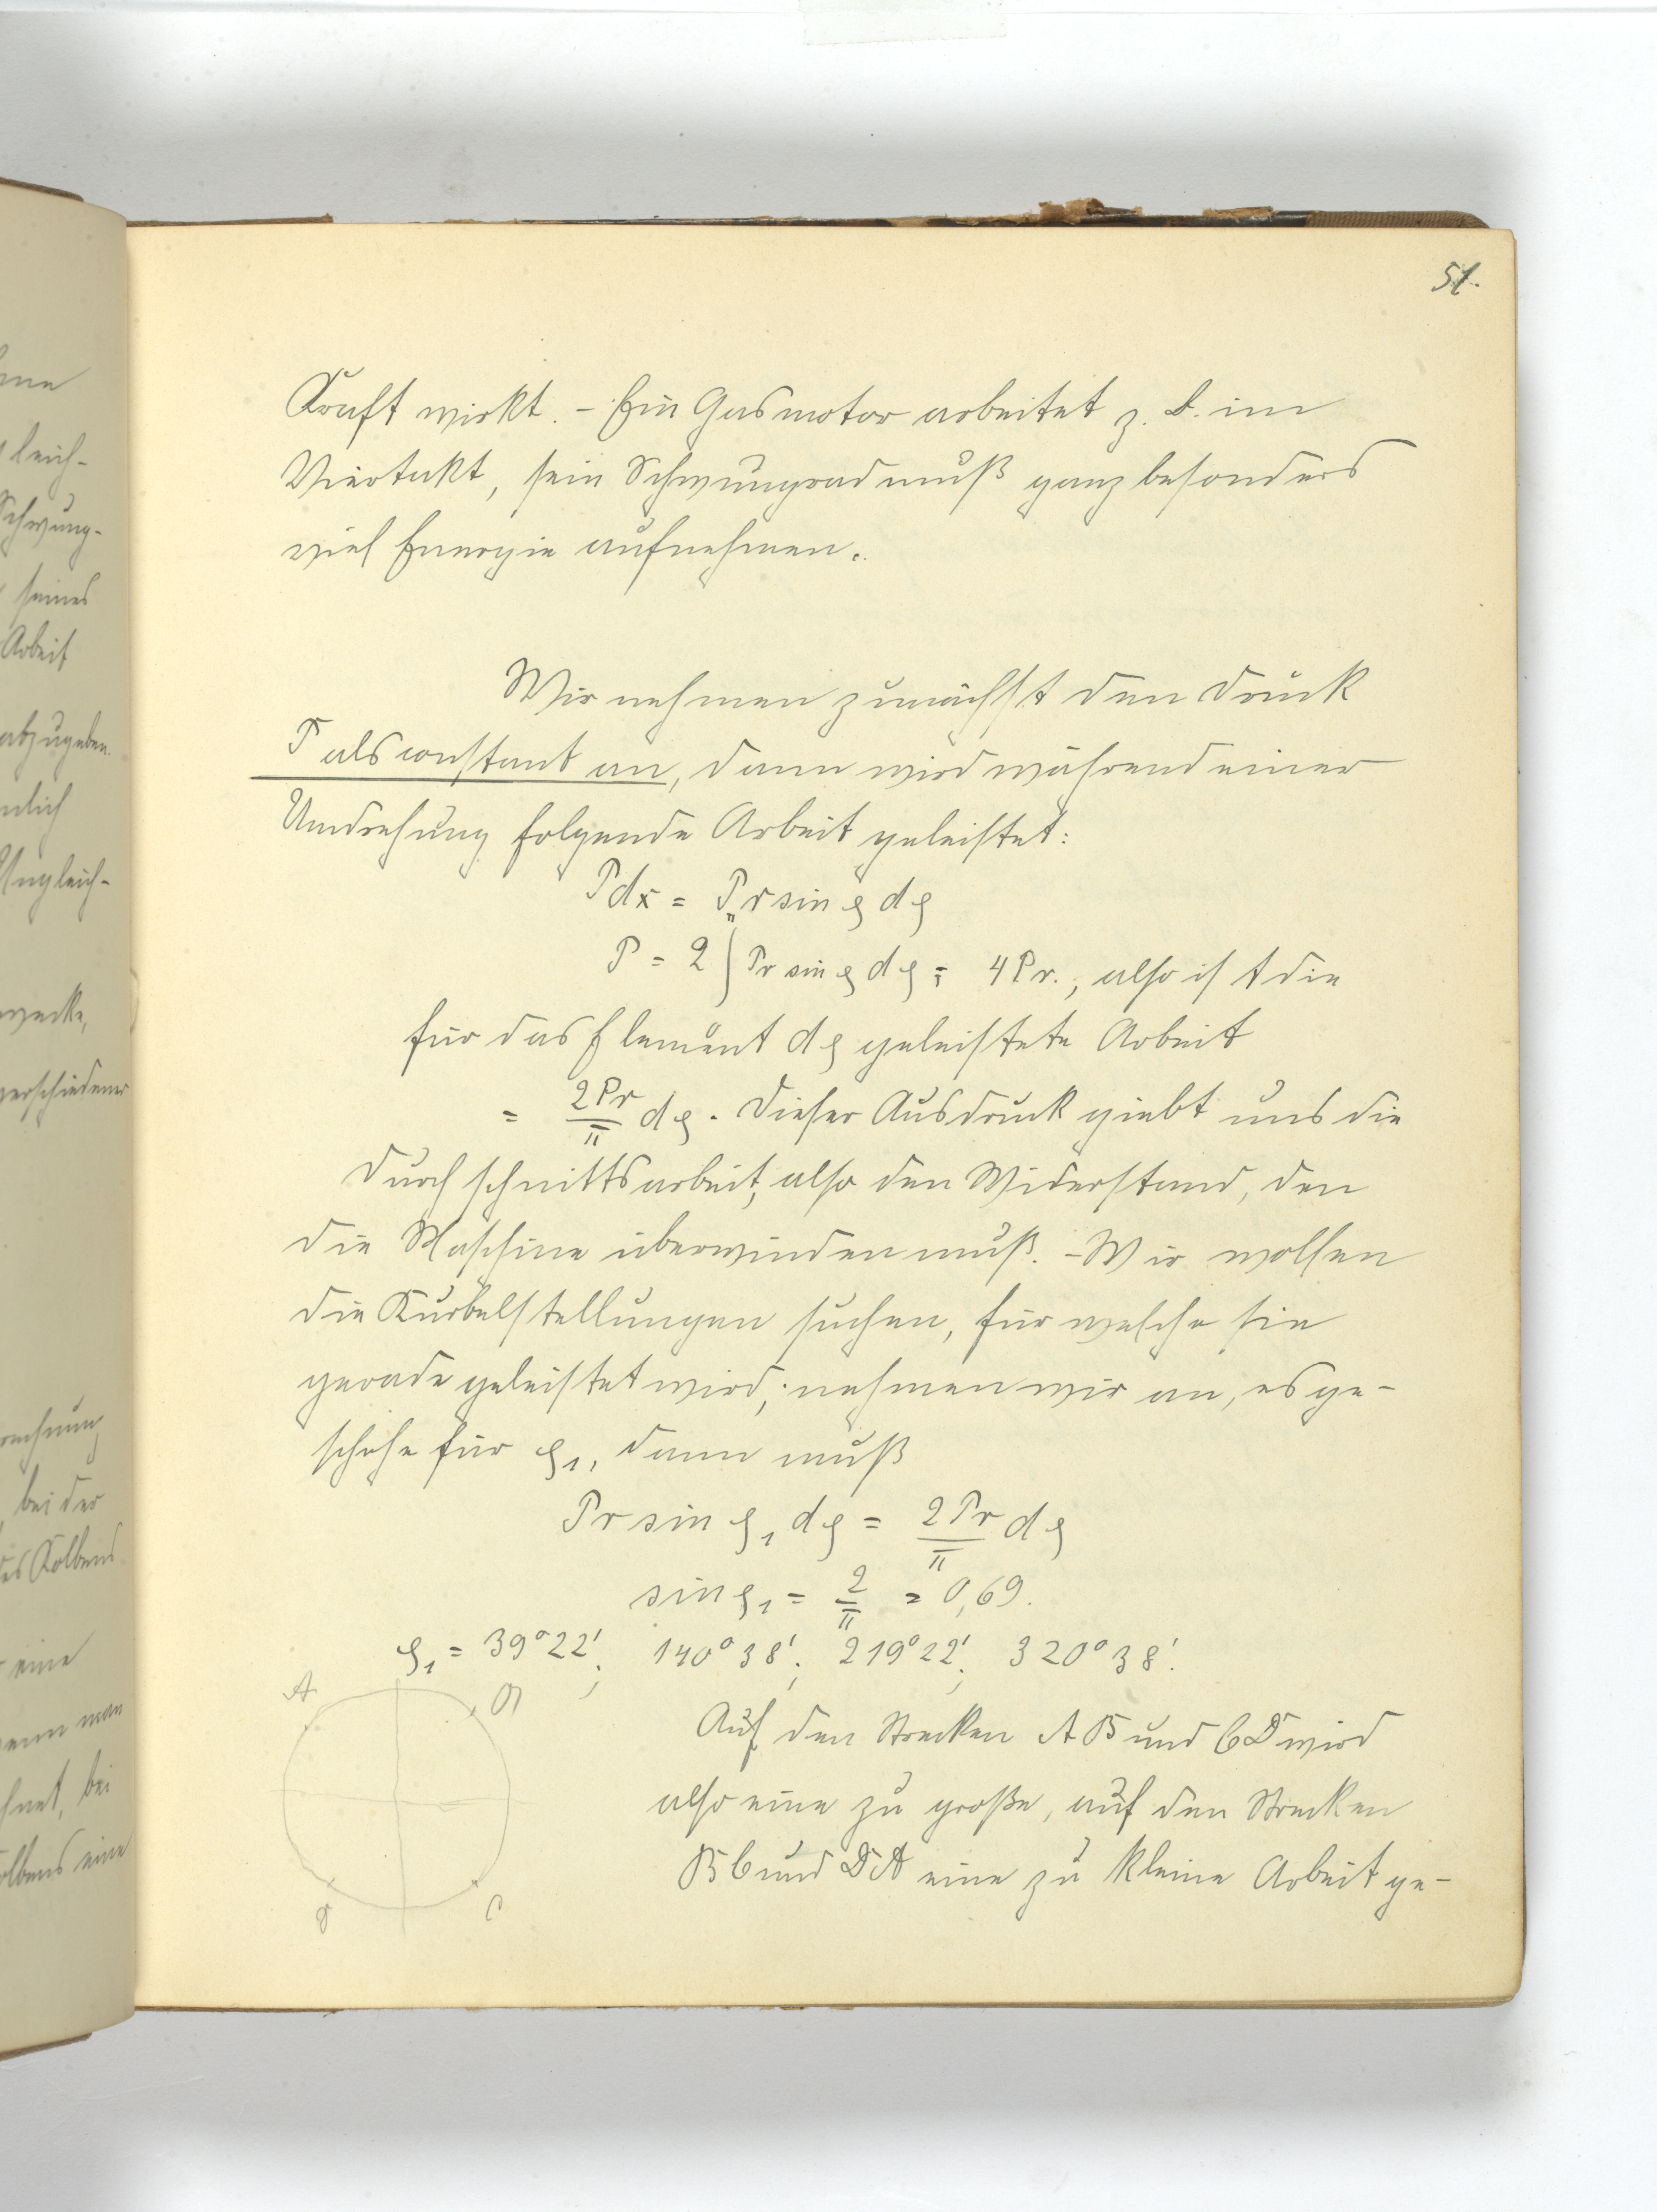 51.
Kraft wirkt. – Ein Gasmotor arbeitet z. B. im
Viertakt, sein Schwungrad muß ganz besonders
viel Energie aufnehmen.
Wir nehmen zunächst den Druck
P als constant an, dann wird während einer
Umdrehung folgende Arbeit geleistet:
Pdx = Pr sin φ dφ
P = 2 ∫ Pr sin φ dφ = 4Pr., also ist die
für das Element dφ geleistete Arbeit
= 2Pr/π dφ. Dieser Ausdruck giebt uns die
Durchschnittsarbeit, also den Widerstand, den
die Maschine überwinden muß. – Wir wollen
die Kurbelstellungen suchen, für welche sie
gerade geleistet wird; nehmen wir an, es ge-
schehe für φ₁, dann muß
Pr sin φ₁ dφ = 2Pr/π dφ
sin φ₁ = 2/π = 0,69.
φ₁ = 39°22'; 140°38'; 219°22'; 320°38'.
A B
Auf den Strecken AB und CD wird
also eine zu große, auf den Strecken
BC und DA eine zu kleine Arbeit ge-
D C
leich-
Schwung-
seines
Arbeit
abzugeben.
Ungleich-
verschiedener
bei der
des Kolbens
eine
wenn man
bei
eine